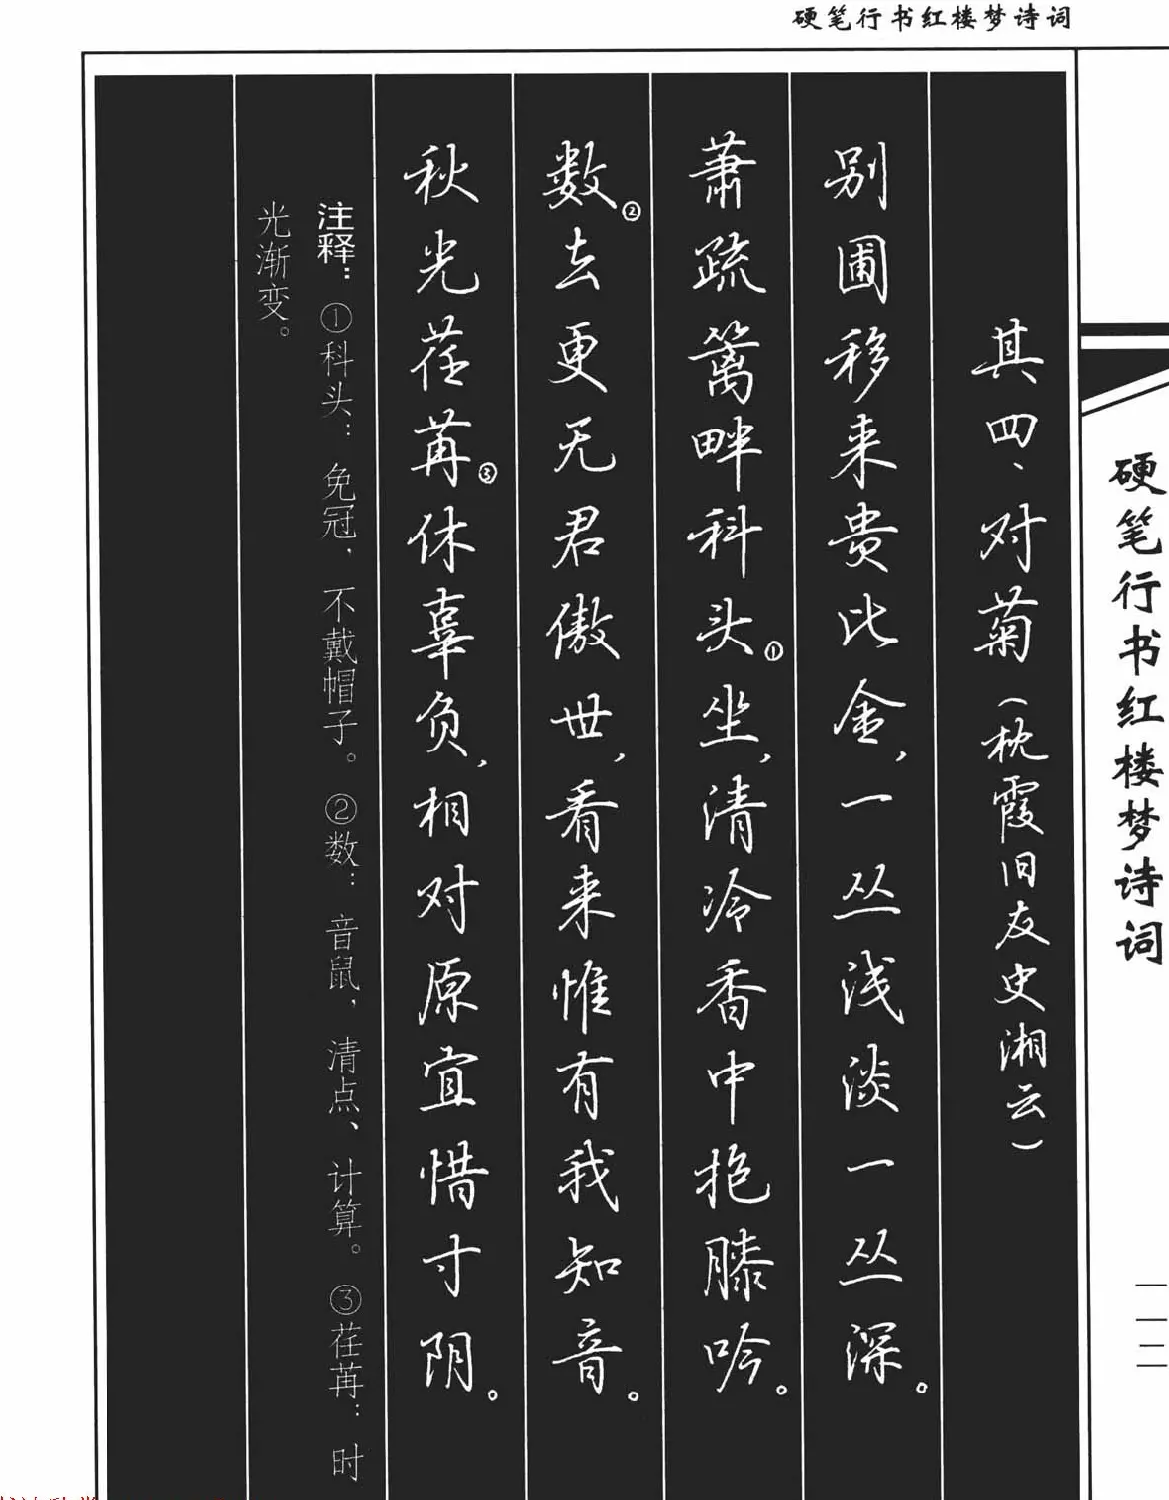 硬笔行书红楼梦诗词
其四、对菊（枕霞旧友史湘云）
别圃移来贵比金，一丛浅淡一丛深。
萧疏篱畔科头①坐，清冷香中抱膝吟。
数②去更无君傲世，看来惟有我知音。
秋光荏苒③休辜负，相对原宜惜寸阴。
注释：①科头：免冠，不戴帽子。②数：音鼠，清点、计算。③荏苒：时
光渐变。
硬笔行书红楼梦诗词
一一二